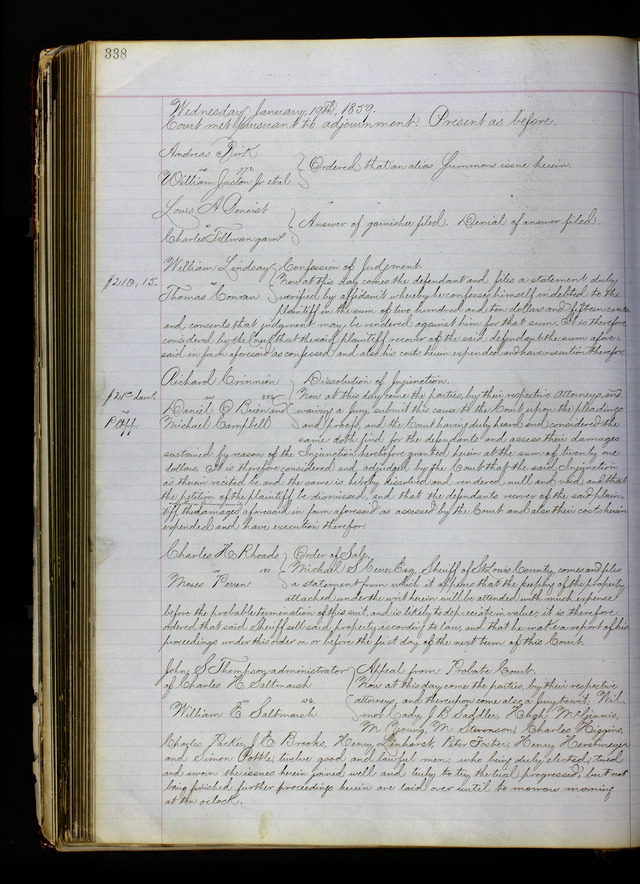 338
Wednesday January 19th 1859.
Court met pursuant to adjournment. Present as before.
Andreas
vs
William Juston Jr et al
Ordered that an alias Summons issue herein.
Louis A Benoist
vs
Charles Tillman garn
Answer of garnishee filed. Denial of answer filed.
William Lindsay
Confession of Judgment.
$210.15.
vs
Thomas Conran
Now at this day comes the defendant and files a statement duly
verified by affidavit whereby he confesses himself indebted to the
plaintiff in the sum of two hundred and ten dollars and fifteen cents
and consents that judgment may be rendered against him for that sum. It is therefore
considered by the Court that the said plaintiff recover of the said defendant the sum afore-
said in form aforesaid as confessed and also his costs herein expended and have execution therefor.
Richard Crinnion
Dissolution of Injunction.
$21 00 dam
vs
Daniel O Brien and
Michael Campbell
Now at this day come the parties, by their respective attorneys, and
waiving a jury submit this cause to the Court upon the pleadings
and proofs, and the Court having duly heard and considered the
same doth find for the defendants and assess their damages
sustained by reason of the Injunction heretofore granted herein at the sum of twenty one
dollars. It is therefore considered and adjudged by the Court that the said Injunction
as therein recited be and the same is hereby dissolved and rendered null and void and that
the petition of the plaintiff be dismissed, and that the defendants recover of the said plain-
tiff the damages aforesaid in form aforesaid as assessed by the Court and also their costs herein
expended and have execution therefor.
Charles H Rhoads
Order of Sale.
vs
Moses
Michael S Cerre, Esq, Sheriff of St Louis County, comes and files
a statement from which it appears that the keeping of the property
attached under the writ herein will be attended with much expense
before the probable termination of this suit, and is likely to depreciate in value; it is therefore
ordered that said Sheriff sell said property according to law, and that he make a report of his
proceedings under this order on or before the first day of the next term of this Court.
John S Thompson administrator
of Charles H Saltmarsh
Appeal from Probate Court.
vs
William E Saltmarsh
Now at this day come the parties by their respective
attorneys, and thereupon comes also a jury to wit; Wil-
mot Cady, J B Saddler, Hugh McGinnis,
M Young, M Stevenson, Charles Higgins,
Charles Packer, J E Brooks, Henry Linhorst, Peter Foster, Henry
and Simon Pottle, twelve good and lawful men, who being duly elected, tried
and sworn the issues herein joined well and truly to try the trial progressed, but not
being finished further proceedings herein are laid over until to morrow morning
at ten o'clock.